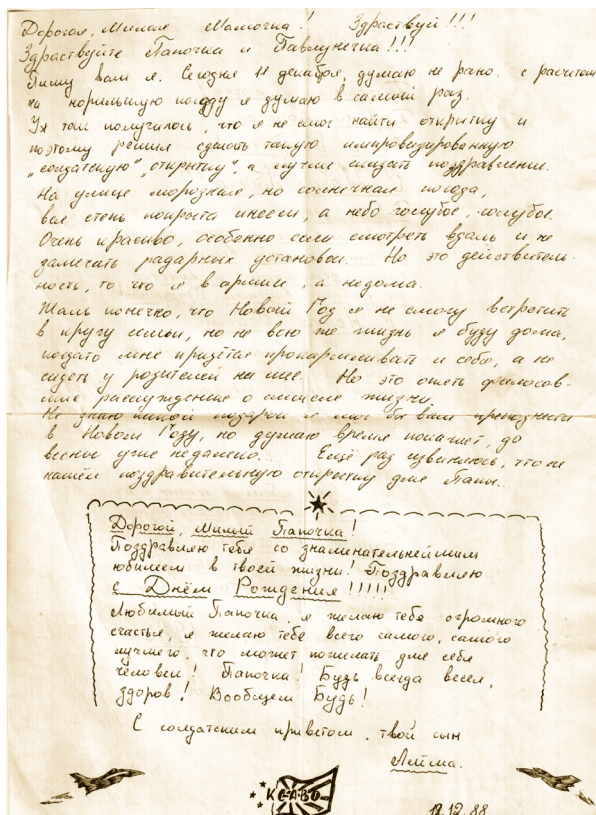 Дорогая, Милая Мамочка! Здравствуй!!!
Здравствуйте Папочка и Павлунечка!!!
Пишу Вам я. Сегодня 11 декабря, думаю не рано, с расчетом
на норильскую погоду я думаю в самый раз.
Уж так получилось, что я не смог найти открытку и
поэтому решил сделать такую импровизированную
"солдатскую" открытку", а лучше сказать поздравление.
На улице морозная, но солнечная погода,
вся степь покрыта инеем, а небо голубое, голубое.
Очень красиво, особенно если смотреть вдаль и не
замечать радарных установок. Но это действитель-
ность, то что я в армии, а не дома.
Жаль конечно, что Новый Год я не смогу встретить
в кругу семьи, но не всю же жизнь я буду дома,
когда то мне придётся прокармливать и себя, а не
сидеть у родителей на шее. Но это опять философ-
ские рассуждения о смысле жизни.
Не знаю какой подарок я мог бы вам преподнести
к Новому Году, но думаю время покажет, до
весны уже недалеко. Ещё раз извиняюсь, что не
нашёл поздравительную открытку для Папы.
Дорогой, милый Папочка!
Поздравляю тебя со знаменательнейшим
юбилеем в твоей жизни! Поздравляю
с Днём Рождения!!!!!
Любимый Папочка, я желаю тебе огромного
счастья, я желаю тебе всего самого, самого
лучшего, что может пожелать для себя
человек! Папочка! Будь всегда весел,
здоров! Вообщем Будь!
С солдатским приветом, твой сын
Лёйма.
КСАВО
12.12.88